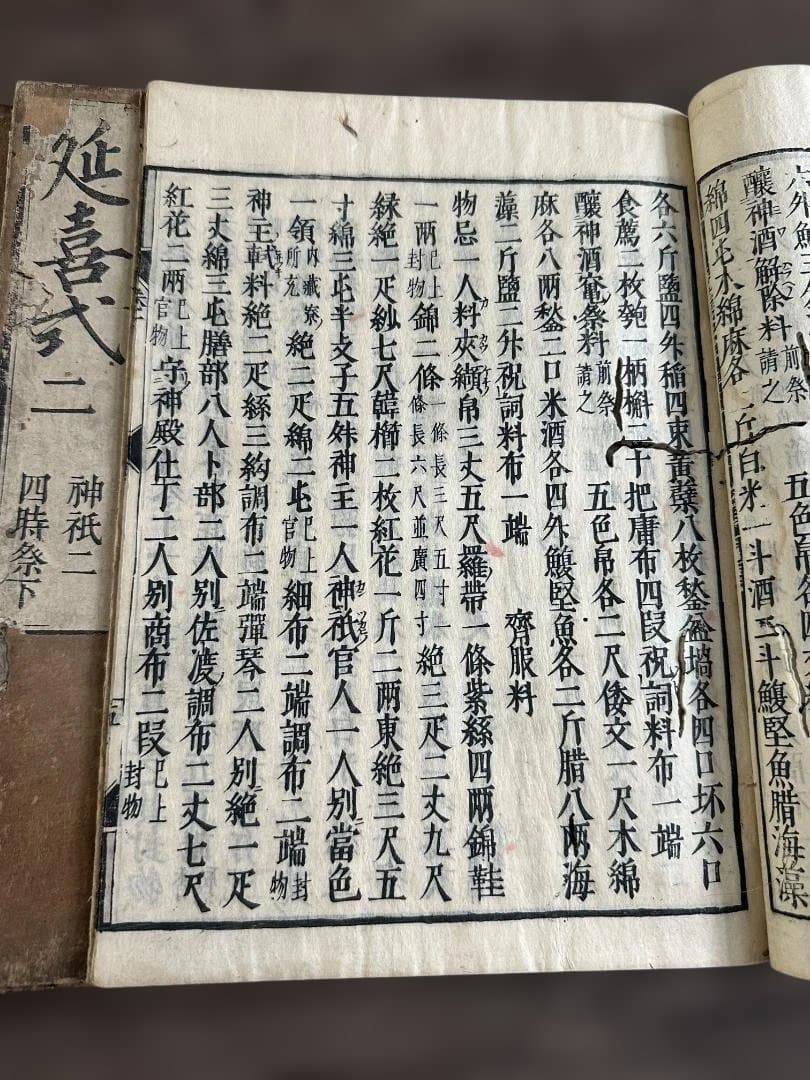 釀神酒解除料前祭請之
綿四屯木綿麻各二斤白米一斗酒二斗鰒堅魚腊海藻
各六斤鹽四升稲四束黄蘗八枚䥫盆堝各四口坏六口
食薦二枚匏一柄槲二十把庸布四叚祝詞料布一端
釀神酒竈祭料前祭請之 五色帛各二尺倭文一尺木綿
麻各八兩䥫二口米酒各四升鰒堅魚各二斤腊八兩海
藻二斤鹽二升祝詞料布一端 齊服料
物忌一人料夾纈帛三丈五尺羅帶一條紫絲四兩錦鞋
一兩已上封物錦二條一條長三尺五寸一條長六尺並廣四寸絁三疋二丈九尺
緑絁一疋紗七尺韓櫛二枚紅花一斤二兩東絁三尺五
寸綿三屯半攴子五舛神主一人神祇官人一人別當色
一領内藏寮所充絁二疋綿二屯已上官物細布二端調布二端封物
神王軾料絁二疋絲三絇調布二端彈琴二人別絁一疋
三丈綿三屯膳部八人卜部二人別佐渡調布二丈七尺
紅花二兩已上官物守神殿仕丁二人別商布二叚已上封物
五
延喜式 二
神祇二
四時祭下